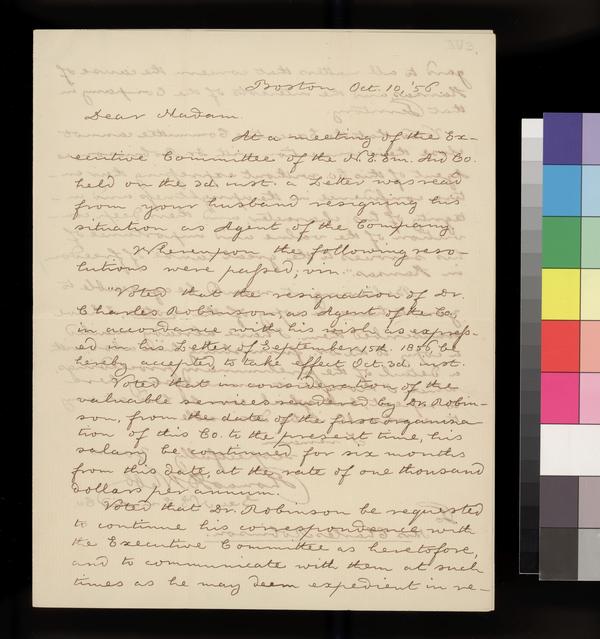 Boston Oct. 10, '56
Dear Madam.
At a meeting of the Ex-
ecutive Committee of the N. E. Em. Aid Co.
held on the 3d. inst. a Letter was read
from your husband resigning his
situation as Agent of the Company
Whereupon the following reso-
lutions were passed; viz.
"Voted that the resignation of Dr.
Charles Robinson, as Agent of the Co.
in accordance with his wish as express-
ed in his Letter of September 15th 1856 be
hereby accepted to take effect Oct. 3d. inst.
Voted that in consideration of the
valuable services rendered by Dr. Robin-
son, from the date of the first organiza
tion of this Co. to the present time, his
salary be continued for six months
from this date at the rate of one thousand
dollars per annum.
Voted that Dr. Robinson be requested
to continue his correspondence with
the Executive Committee as heretofore,
and to communicate with them at such
times as he may deem expedient in re-